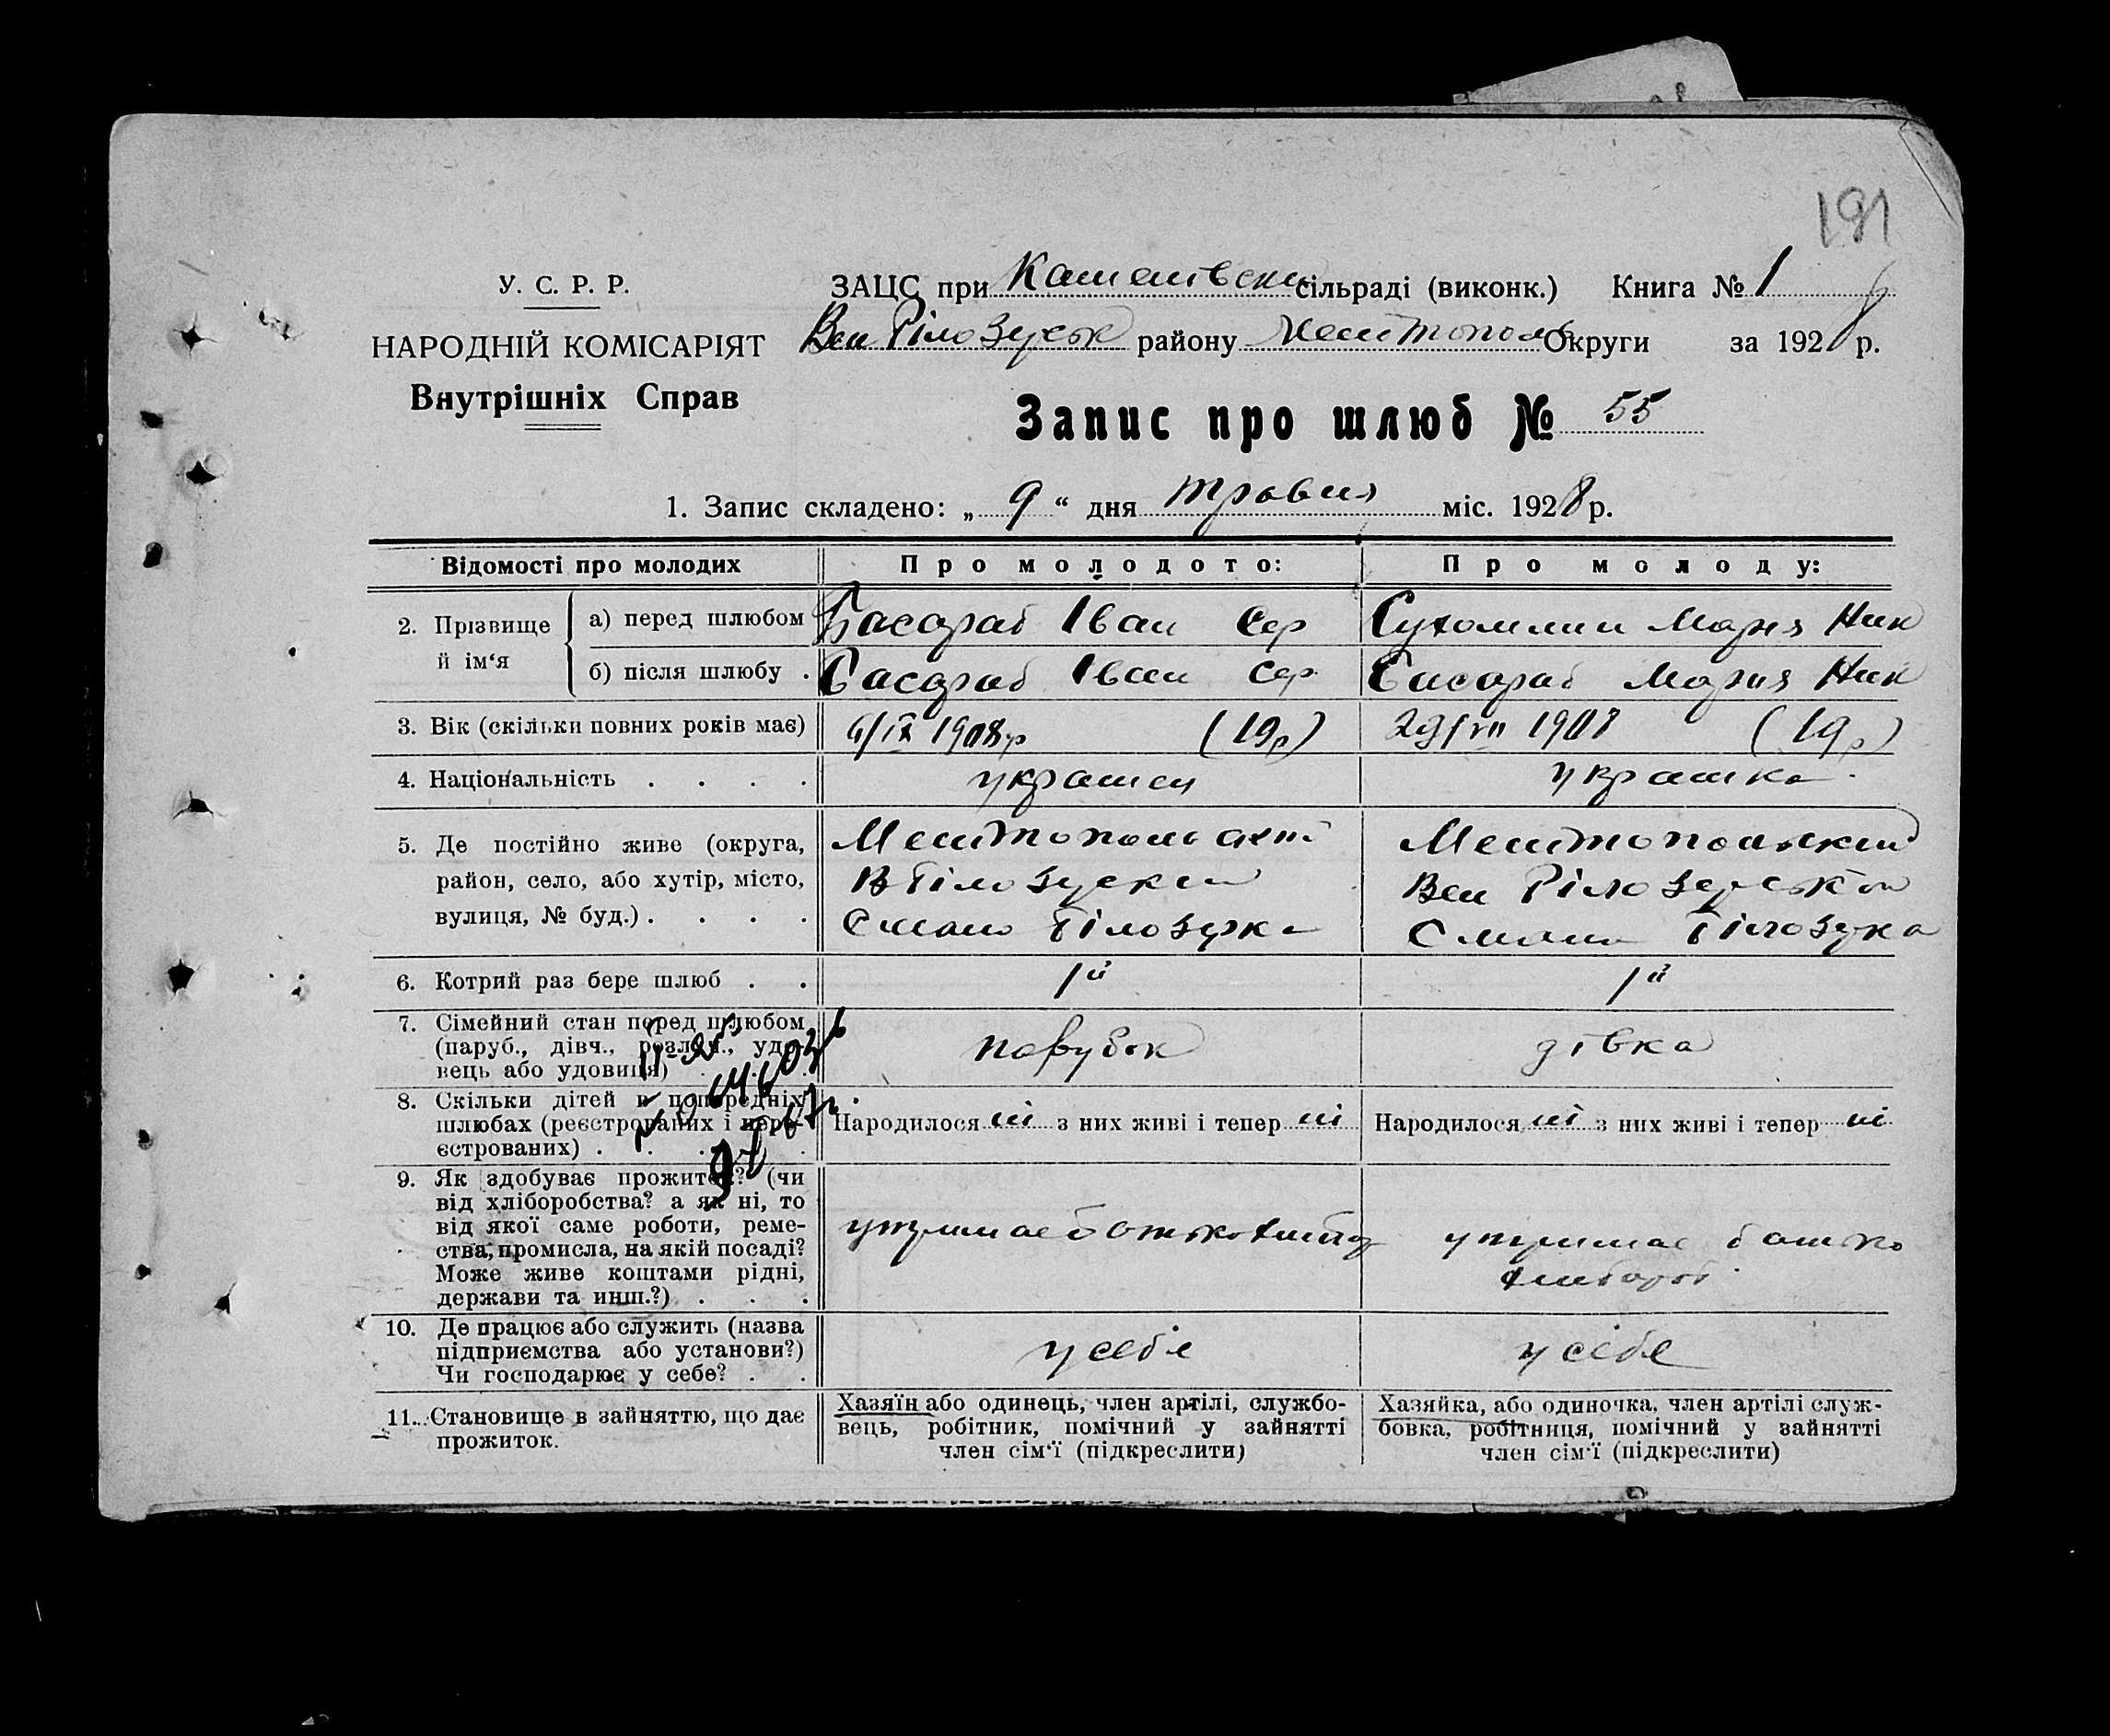 191
У. С. Р. Р.
НАРОДНІЙ КОМІСАРІЯТ
Внутрішніх Справ
ЗАЦС при сільраді (виконк.) Книга № 1
Вел Білозуськ району Мелітополь Округи за 1928 р.
Запис про шлюб № 55
1. Запис складено: „ 9 “ дня травня міс. 1928 р.
Відомості про молодих
Про молодото:
Про молоду:
2. Прізвище й ім‘я
а) перед шлюбом
Басараб Іван Сер
Сухомлин Мария Ник
б) після шлюбу .
Басараб Іван Сер
Басараб Мария Ник
3. Вік (скільки повних років має)
6/IX 1908р (19р)
29/VII 1908 (19р)
4. Національність . . . .
украінец
украінка
5. Де постійно живе (округа,
район, село, або хутір, місто,
вулиця, № буд.) . . . .
Мелітополь
В Білозуский
Смало Білозурка
Мелітопольский
Вел Білозерской
Смало Білозука
6. Котрий раз бере шлюб . .
1й
1й
7. Сімейний стан перед шлюбом
(паруб., дівч., розлоч., удо-
вець або удовиця) . . .
парубок
дівка
8. Скільки дітей в попередніх
шлюбах (реєстрованих і нере-
єстрованих) . . . . .
Народилося ні з них живі і тепер ні
Народилося ні з них живі і тепер ні
9. Як здобуває прожиток? (чи
від хліборобства? а як ні, то
від якої саме роботи, реме-
ства, промисла, на якій посаді?
Може живе коштами рідні,
держави та инш.?) . . .
утримає батько
утримає батько
хлібороб
10. Де працює або служить (назва
підприємства або установи?)
Чи господарює у себе? . .
у себе
у себе
11. Становище в зайняттю, що дає
прожиток.
Хазяїн або одинець, член артілі, службо-
вець, робітник, помічний у зайнятті
член сім‘ї (підкреслити)
Хазяйка, або одиночка, член артілі служ-
бовка, робітниця, помічний у зайнятті
член сім‘ї (підкреслити)